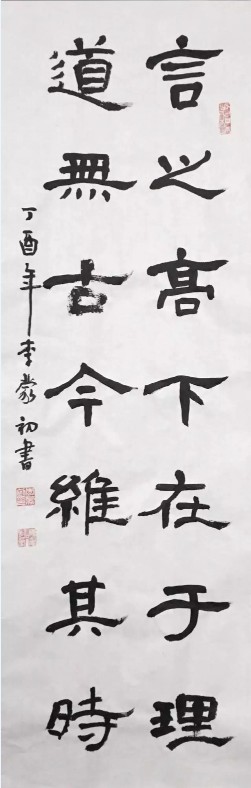 言之高下在于理
道無古今維其時
丁酉年李蒙初書